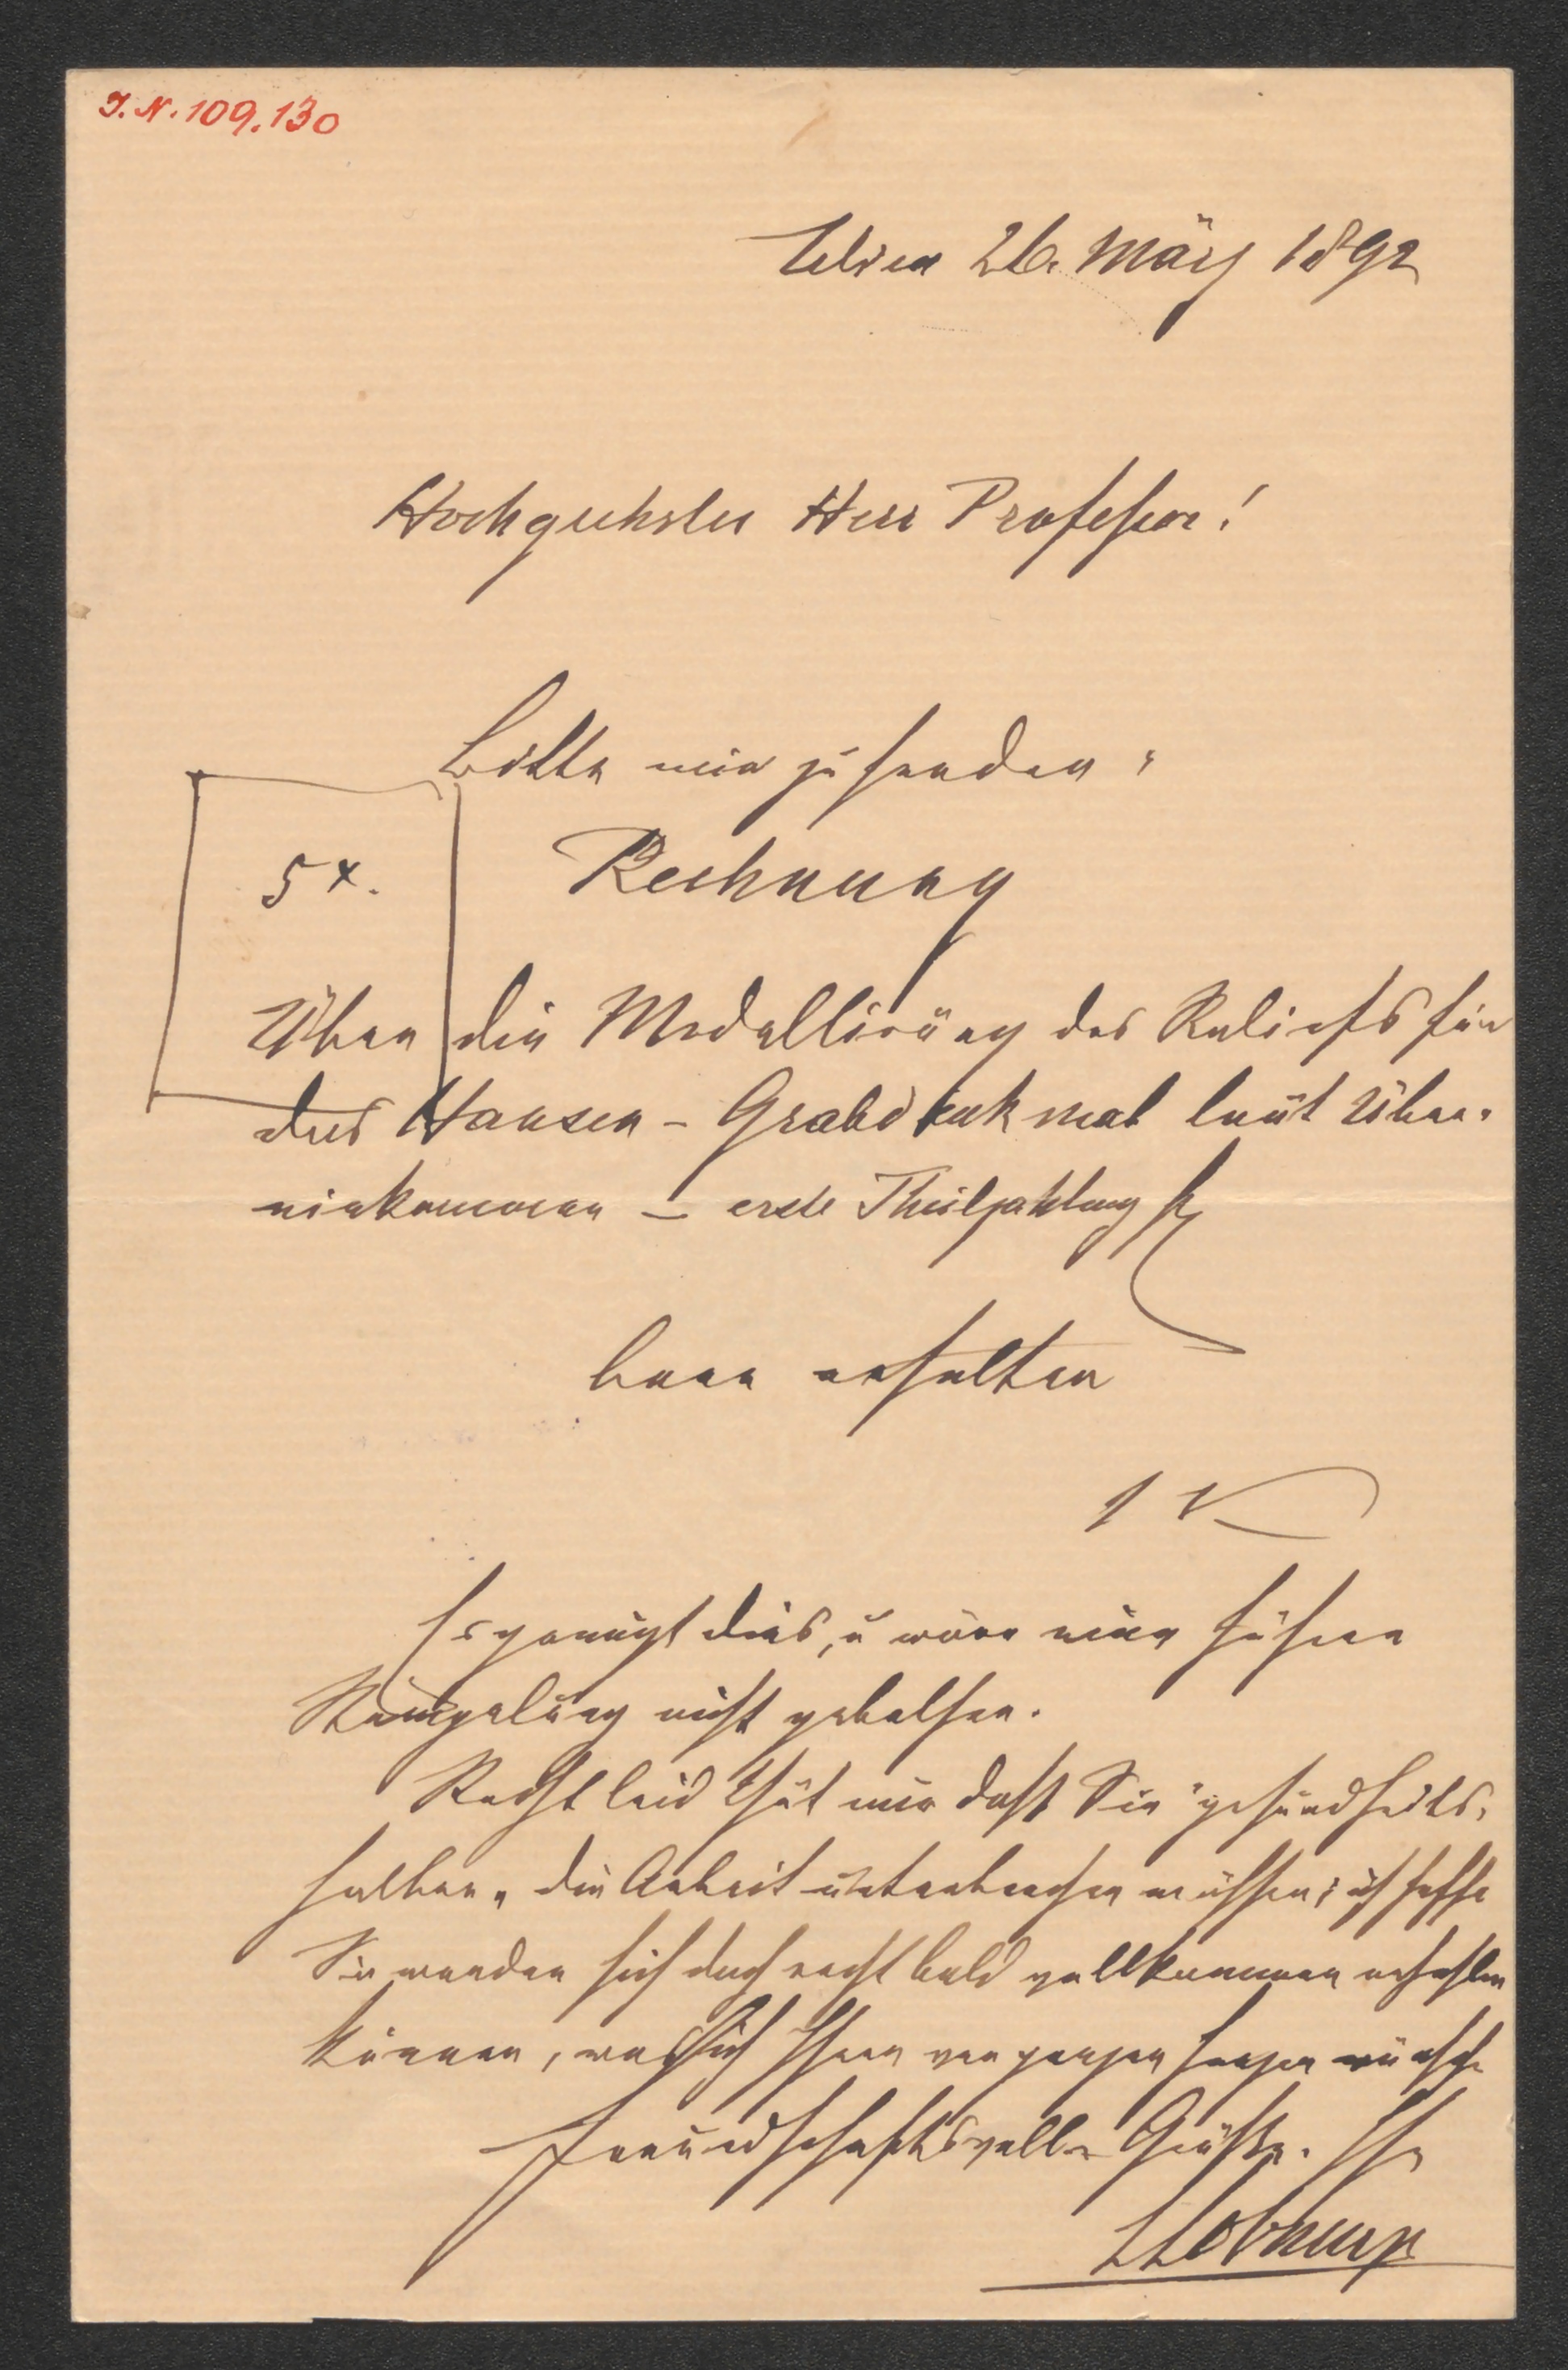 I. N. 109.130
Wien 26. März 1892
Hochgeehrter Herr Professor!
Bitte mir zu senden:
5 x. Rechnung
Über die Modellirung des Reliefs für
das Hansen-Grabdenkmal laut Über-
einkommen – erste Theilzahlung fl
baar erhalten
Es genügt dies, u wäre eine höhere
Stempelung nicht geholfen.
Recht leid thut mir daß Sie "gesundheits-
halber" die Arbeit unterbrechen müssen; ich hoffe
Sie werden sich doch recht bald vollkommen erholen
können, was ich Ihnen von ganzen Herzen wünsche
Freundschaftsvolle Grüße. Ihr